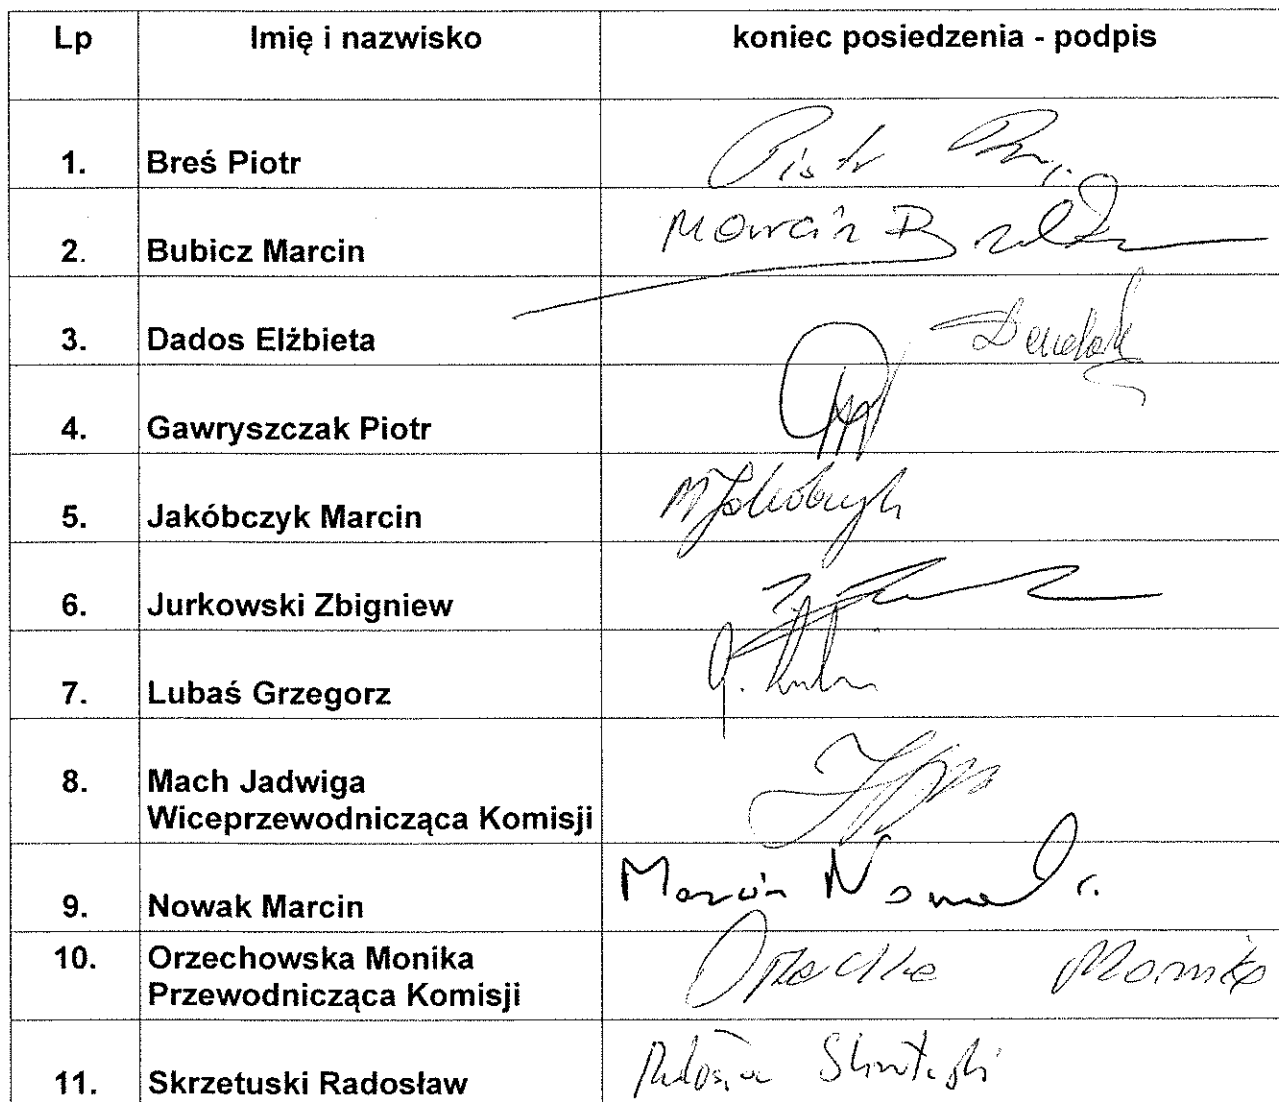 Lp Imię i nazwisko koniec posiedzenia - podpis
1. Breś Piotr Piotr
2. Bubicz Marcin Marcin
3. Dados Elżbieta
4. Gawryszczak Piotr
5. Jakóbczyk Marcin M Jakóbczyk
6. Jurkowski Zbigniew
7. Lubaś Grzegorz
8. Mach Jadwiga
Wiceprzewodnicząca Komisji
9. Nowak Marcin Marcin Nowak
10. Orzechowska Monika Monika
Przewodnicząca Komisji
11. Skrzetuski Radosław